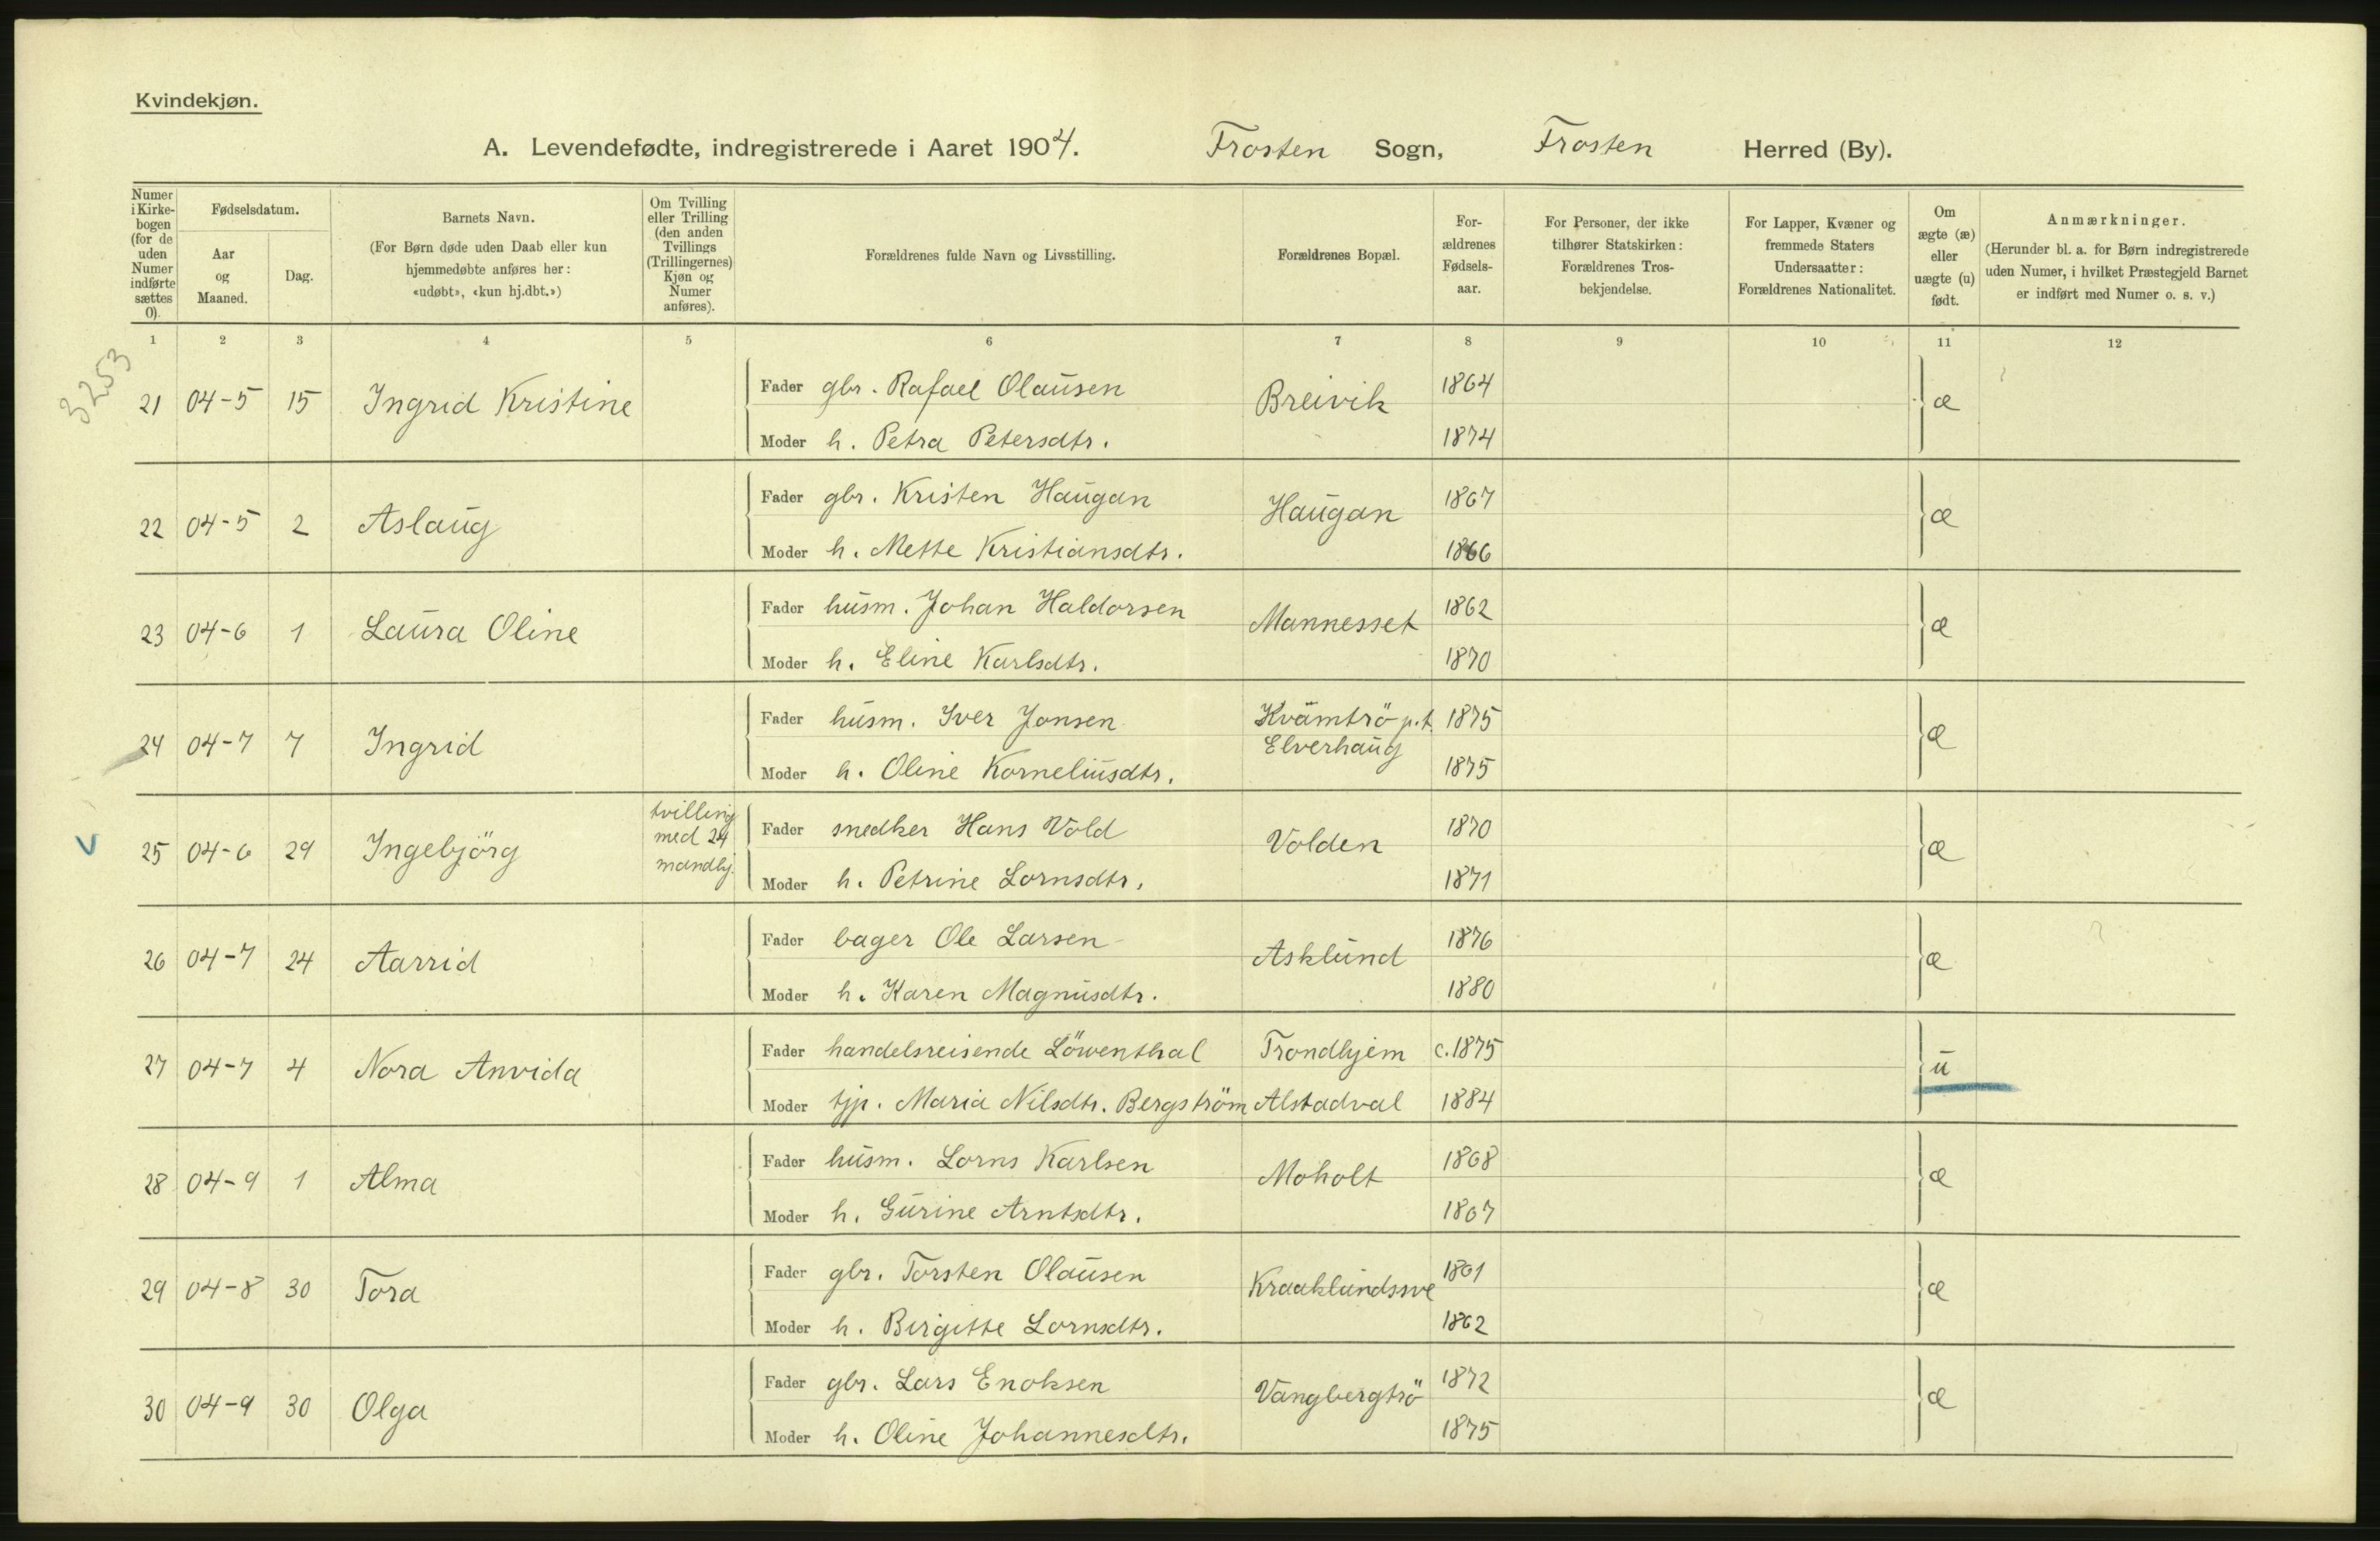 Kvindekjøn.
A. Levendefødte, indregistrerede i Aaret 1904. Frosten Sogn, Frosten Herred (By).
Numer i Kirkebogen (for de uden Numer indførte sættes 0).
Fødselsdatum.
Aar og Maaned.
Dag.
Barnets Navn.
(For Børn døde uden Daab eller kun
hjemmedøbte anføres her:
«udøbt», «kun hj.dbt.»)
Om Tvilling
eller Trilling
(den anden
Tvillings
(Trillingernes)
Kjøn og
Numer
anføres).
Forældrenes fulde Navn og Livsstilling.
Forældrenes Bopæl.
For-
ældrenes
Fødsels-
aar.
For Personer, der ikke
tilhører Statskirken:
Forældrenes Tros-
bekjendelse.
For Lapper, Kvæner og
fremmede Staters
Undersaatter:
Forældrenes Nationalitet.
Om
ægte (æ)
eller
uægte (u)
født.
Anmærkninger.
(Herunder bl. a. for Børn indregistrerede
uden Numer, i hvilket Præstegjeld Barnet
er indført med Numer o. s. v.)
1 2 3 4 5 6 7 8 9 10 11 12
3253
21 04-5 15 Ingrid Kristine Fader gbr. Rafael Olausen Breivik 1864 æ
Moder h. Petra Petersdtr. 1874
22 04-5 2 Aslaug Fader gbr. Kristen Haugan Haugan 1867 æ
Moder h. Mette Kristiansdtr. 1866
23 04-6 1 Laura Oline Fader husm. Johan Haldorsen Mannesset 1862 æ
Moder h. Eline Karlsdtr. 1870
24 04-7 7 Ingrid Fader husm. Iver Jonsen Kvämtrö p.t. Elverhaug 1875 æ
Moder h. Oline Korneliusdtr. 1875
v 25 04-6 29 Ingebjörg tvilling med 24 mandkj. Fader snedker Hans Vold Volden 1870 æ
Moder h. Petrine Lornsdtr. 1871
26 04-7 24 Aarrid Fader bager Ole Larsen Asklund 1876 æ
Moder h. Karen Magnusdtr. 1880
27 04-7 4 Nora Anvida Fader handelsreisende Löwenthal Trondhjem c. 1875 u
Moder tjp. Maria Nilsdtr. Bergström Alstadval 1884
28 04-9 1 Alma Fader husm. Lorns Karlsen Moholt 1868 æ
Moder h. Gurine Arntsdtr. 1867
29 04-8 30 Tora Fader gbr. Torsten Olausen Kraaklundssve 1861 æ
Moder h. Birgitte Lornsdtr. 1862
30 04-9 30 Olga Fader gbr. Lars Enoksen Vangbergtrö 1872 æ
Moder h. Oline Johannesdtr. 1875